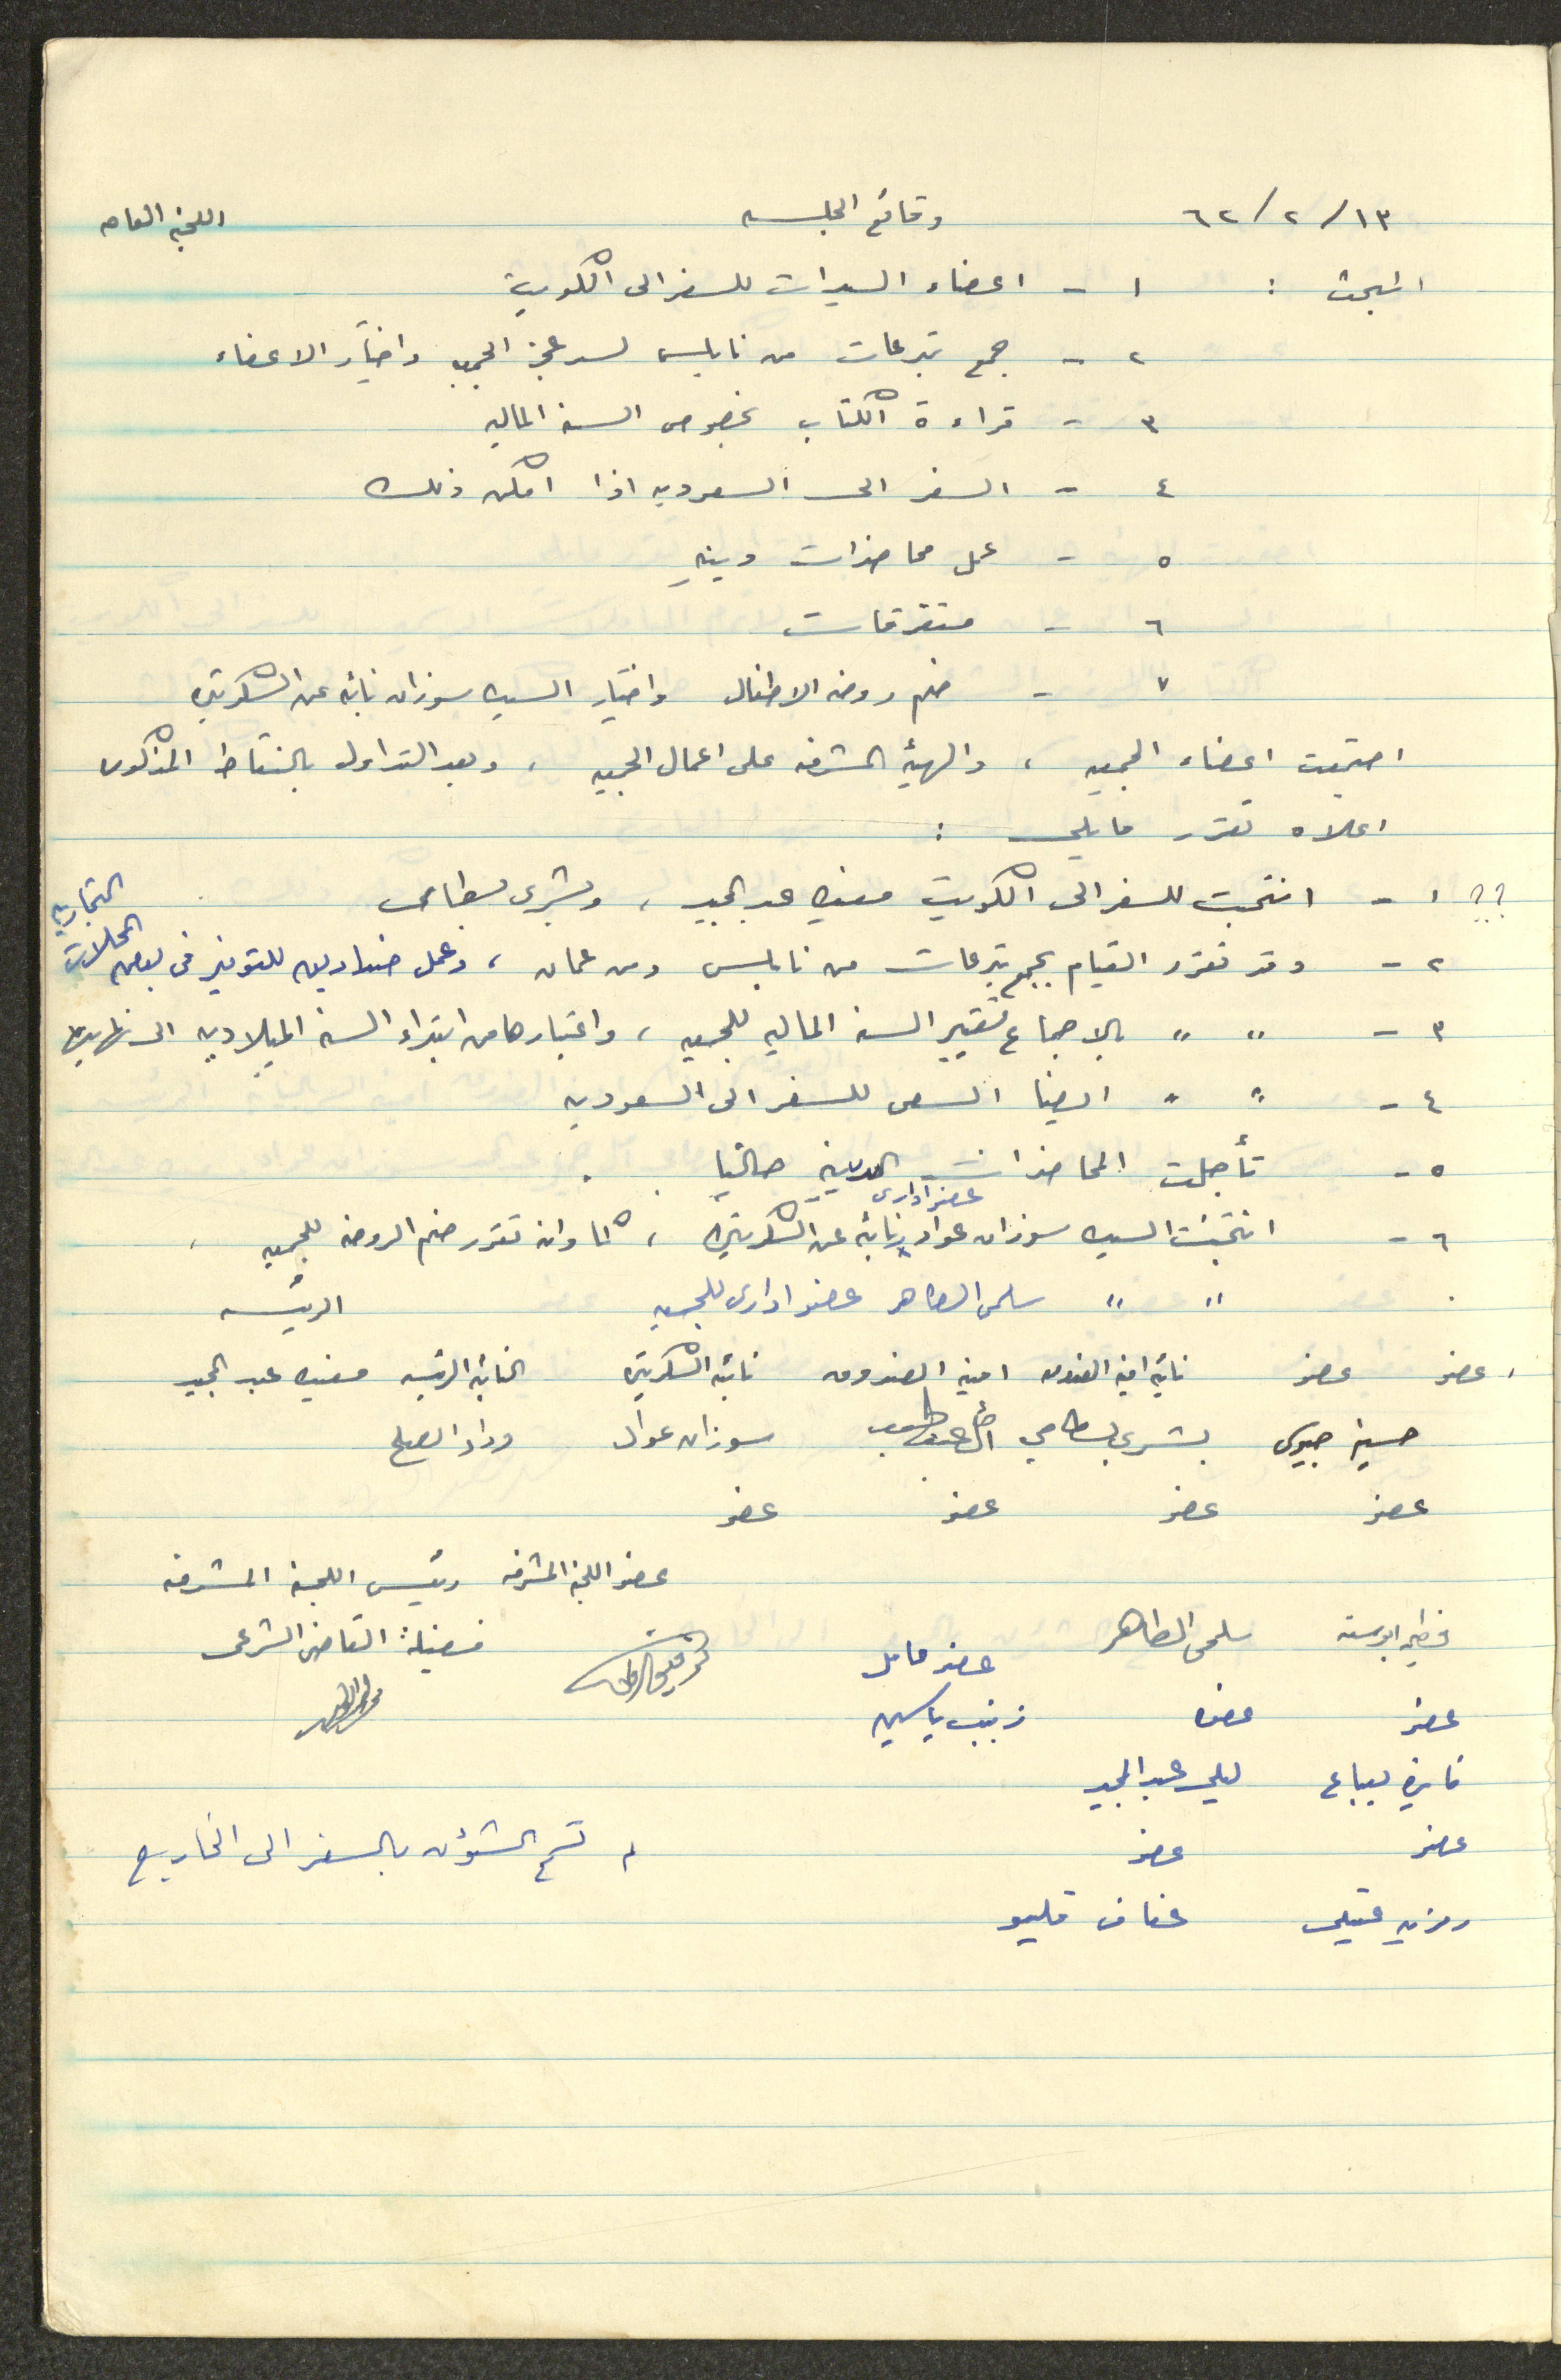 ١٣/ ٢/ ٦٢ وقائع الجلسه اللجنه العامه
البحث : ١ - اعضاء السيدات للسفر الى الكويت
٢ - جمع تبرعات من نابلس لسد عجز الجمعيه واختيار الاعضاء
٣ - قراءة الكتاب بخصوص السنه الماليه
٤ - السفر الى السعوديه اذا امكن ذلك
٥ - عمل محاضرات دينيه
٦ - متفرقات
٧ - ضم روضه الاطفال واختيار السيده سوزان نائبه عن السكرتيره
اجتمعت اعضاء الجمعيه ، والهيئه المشرفه على اعمال الجمعيه ، وبعد التداول بالنقاط المذكوره
اعلاه تقرر مايلي :
؟؟ ١ - انتخبت للسفر الى الكويت مفيده عبد المجيد ، وبشرى بسطامى
٢ - وقد تقرر القيام بجمع تبرعات من نابلس ومن عمان ، وعمل صناديق للتوفير فى بعض المحلات التجاريه
٣ - " " بالاجماع تغيير السنه الماليه للجمعيه ، واعتبارها من ابتداء السنه الميلاديه الى نهايتها
٤ - " " ايضا السعى للسفر الى السعوديه
٥ - تأجلت المحاضرات الدينيه حاليا .
عضو ادارى
٦ - انتخبت السيده سوزان عواد ونائبه عن السكرتيره ، كما وانه تقرر ضم الروضه للجمعيه ،
" " سلمى الطاهر عضو ادارى للجمعيه الرئيسه
عضو عضو نائبه امينه الصندوق امينه الصندوق نائبه السكرتيره النائبه الرئيسه مفيده عبد المجيد
حسينه جيوسى بشرى بسطامي سوزان عواد وداد الصلح
عضو عضو عضو عضو
عضو اللجنه المشرفه رئيس اللجنة المشرفه
سلمى الطاهر عضو عامل فضيلة القاضى الشرعى
عضو عضوه زينب ياسين
فايزه بيباع ليلى عبد المجيد
عضو عضو لم تسمح الشؤون بالسفر الى الخارج
رمزيه عقيلى عفاف قليبو